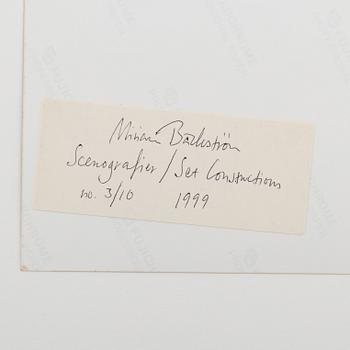 Miriam Bäckström
Scenografier / Set Constructions
no. 3/10 1999